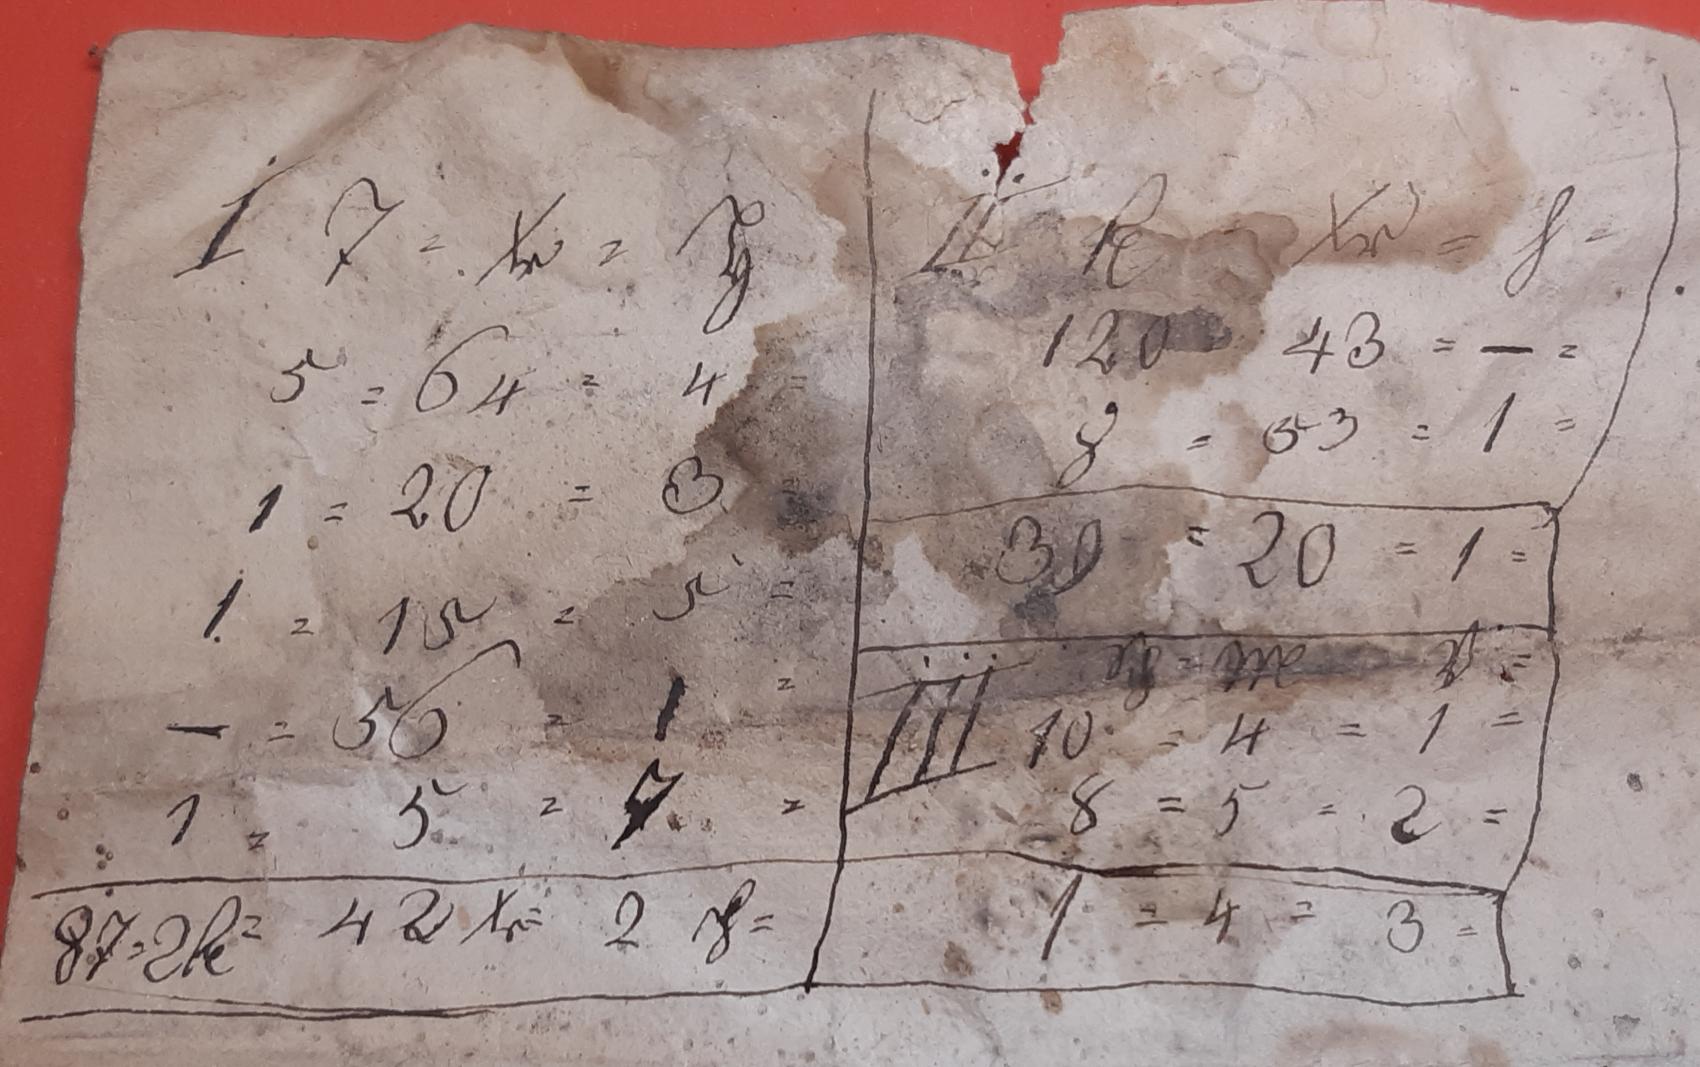 I 7 = Xr =
5 = 64 = 4 =
1 = 20 = 3 =
1 = 15 = 5 =
— = 56 = 1 =
1 = 5 = 7 =
87 = 2 = 42 Xr = 2 =
II Xr = =
120 43 = — =
8 = 53 = 1 =
30 = 20 = 1 =
III
10 = 4 = 1 =
8 = 5 = 2 =
1 = 4 = 3 =